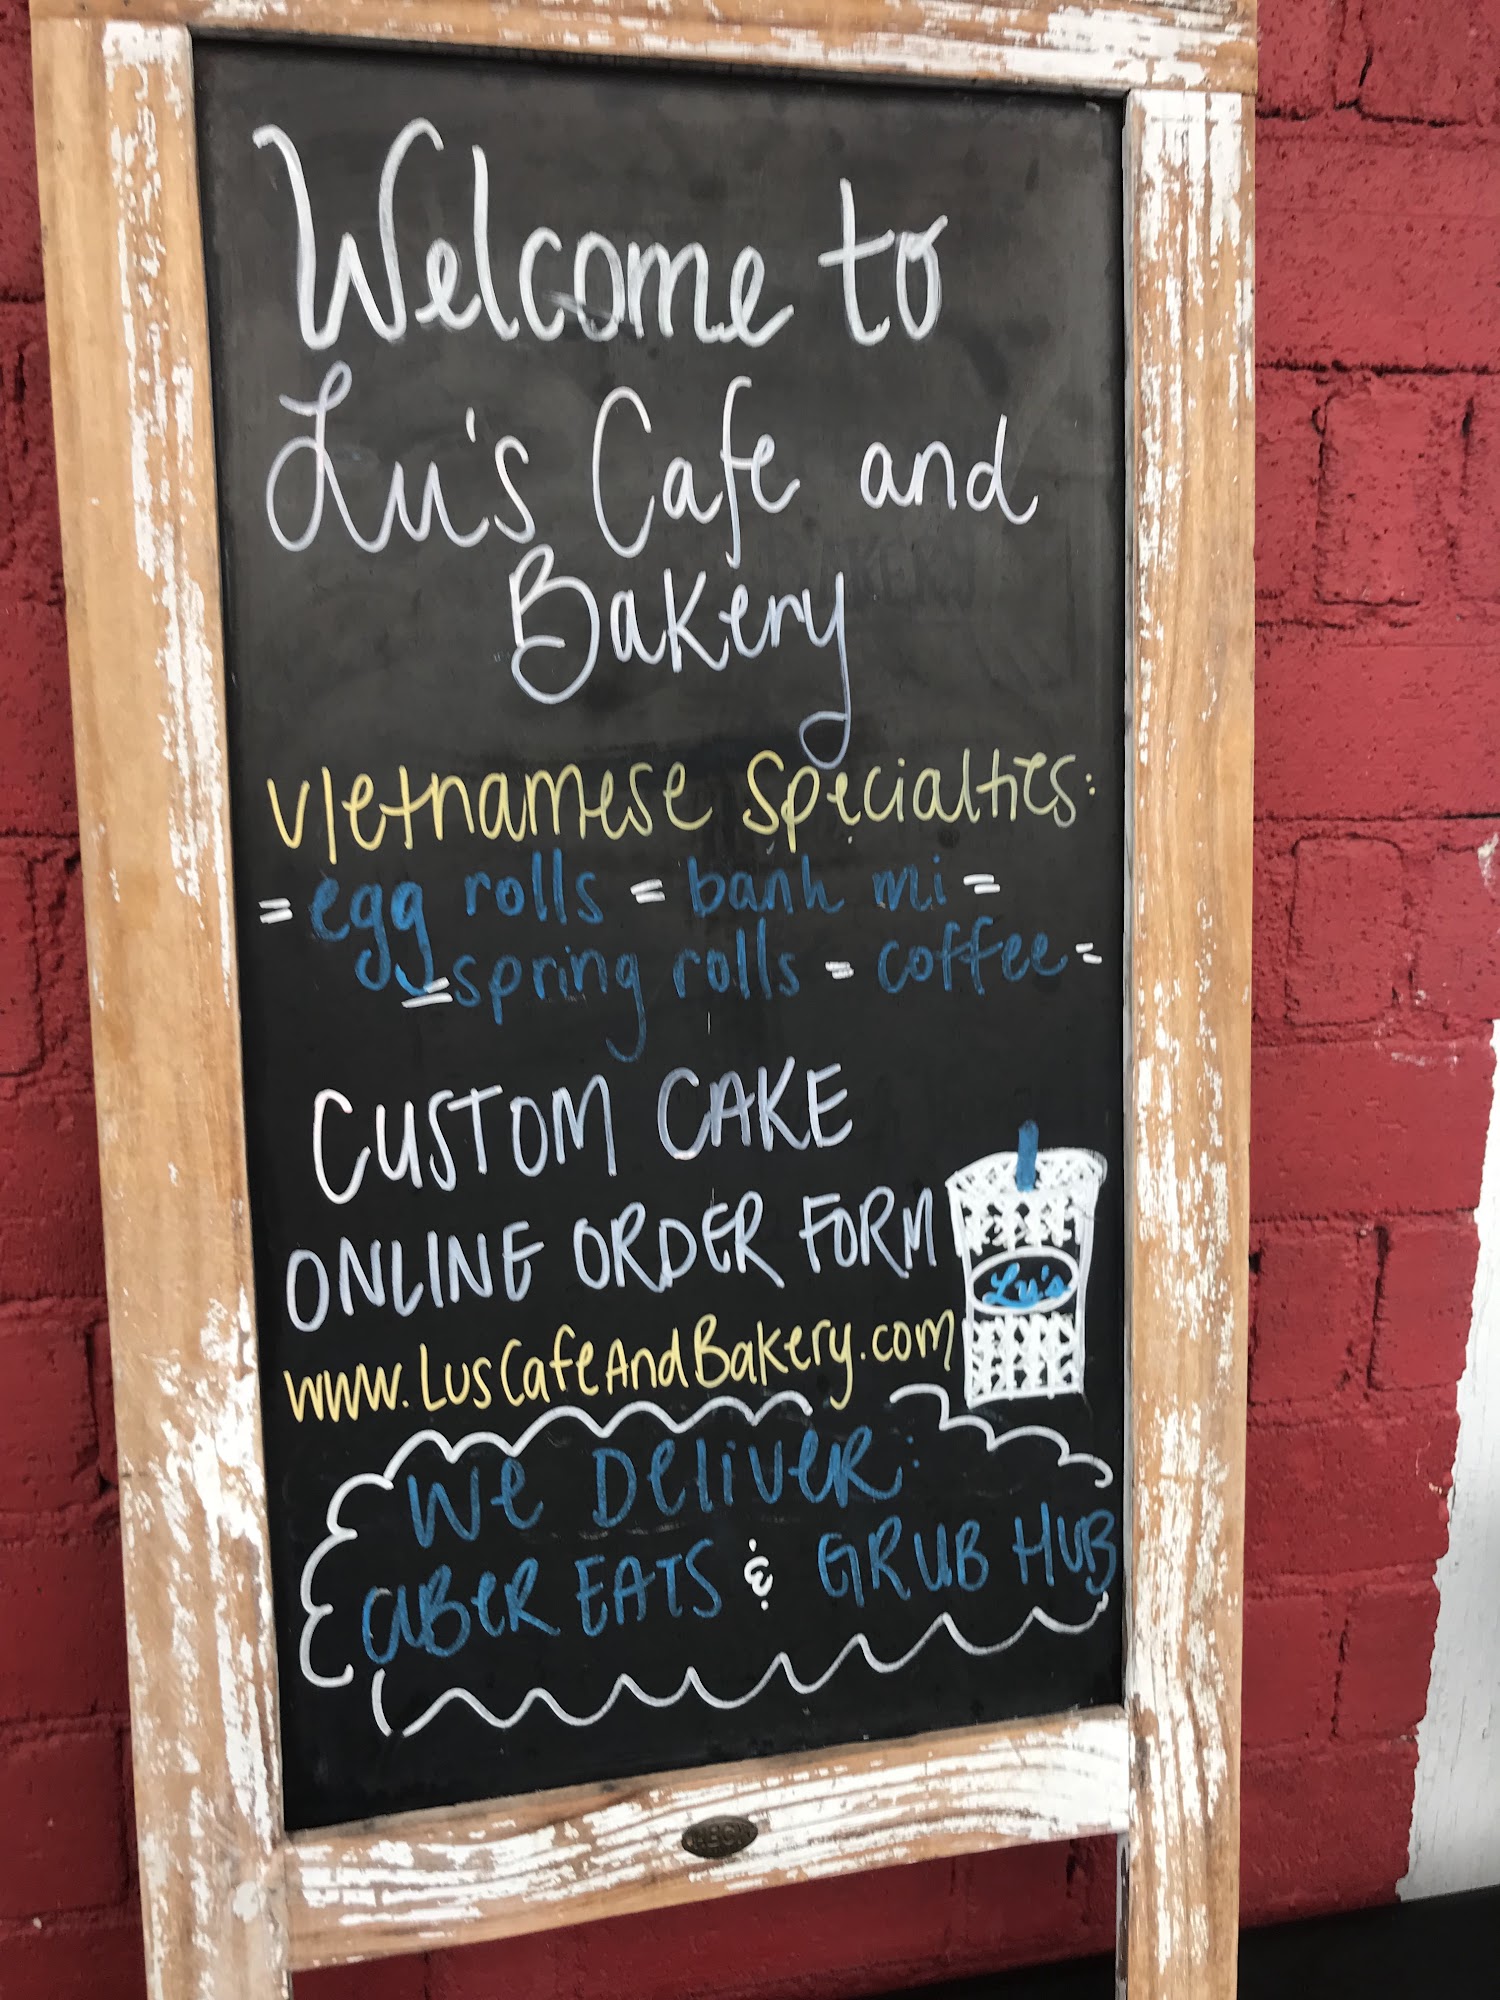 Welcome to
Lu's Cafe and
Bakery
Vietnamese Specialties:
= egg rolls = banh mi =
= spring rolls = coffee =
CUSTOM CAKE
ONLINE ORDER FORM
Lu's
www.LusCafeAndBakery.com
We Deliver:
UBER EATS & GRUB HUB